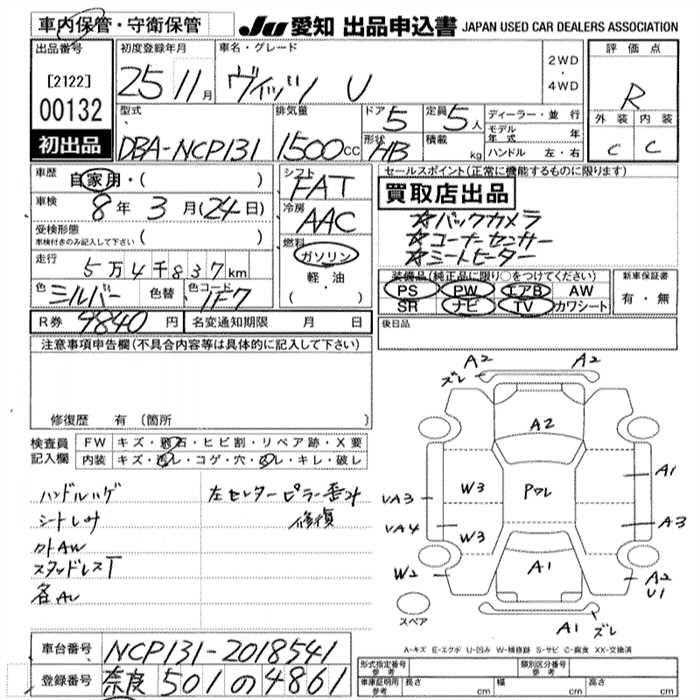 車内保管・守衛保管
JU 愛知 出品申込書 JAPAN USED CAR DEALERS ASSOCIATION
出品番号
[2122]
00132
初出品
初度登録年月
25 11月
車名・グレード
ヴィッツ U
2WD
・
4WD
評価点
R
外装 内装
C C
型式
DBA-NCP131
排気量
1500cc
ドア 5
形状 HB
定員 5人
積載 kg
ディーラー・並行
モデル年式 年
ハンドル 左・右
車歴
自家用・( )
車検
8年 3月(24日)
受検形態
車検付きのみ記入して下さい ( )
走行
5万4千837km
色 シルバー 色替 色コード 1F7
シフト
FAT
冷房
AAC
燃料
ガソリン
・
軽・油
・( )
セールスポイント(正常に機能するものに限ります)
買取店出品
☆バックカメラ
☆コーナーセンサー
☆シートヒーター
装備品(純正品に限り○をつけてください)
PS PW エアB AW
SR ナビ TV カワシート
新車保証書
有・無
R券 9840円 名変通知期限 月 日
後日品
注意事項申告欄(不具合内容等は具体的に記入して下さい)
修復歴 有(箇所 )
検査員
記入欄
FW キズ・飛石・ヒビ割・リペア跡・X要
内装 キズ・汚レ・コゲ・穴・スレ・キレ・破レ
ハンドルハゲ
シートレサ
スタッドレスT
左センターピラー歪み
修復
A2 A2
ズレ
A2
A1
VA3 W3 Pワレ
A3
VA4 W3
W2 A1 A2
U1
スペア
A1 ズレ
A-キズ E-エクボ U-凹み W-補修跡 S-サビ C-腐食 XX-交換済
車台番号 NCP131-2018541
登録番号 奈良 501 の 4861
形式指定番号
参考
類別区分番号
参考
車庫証明用
参考
長さ cm 幅 cm 高さ cm